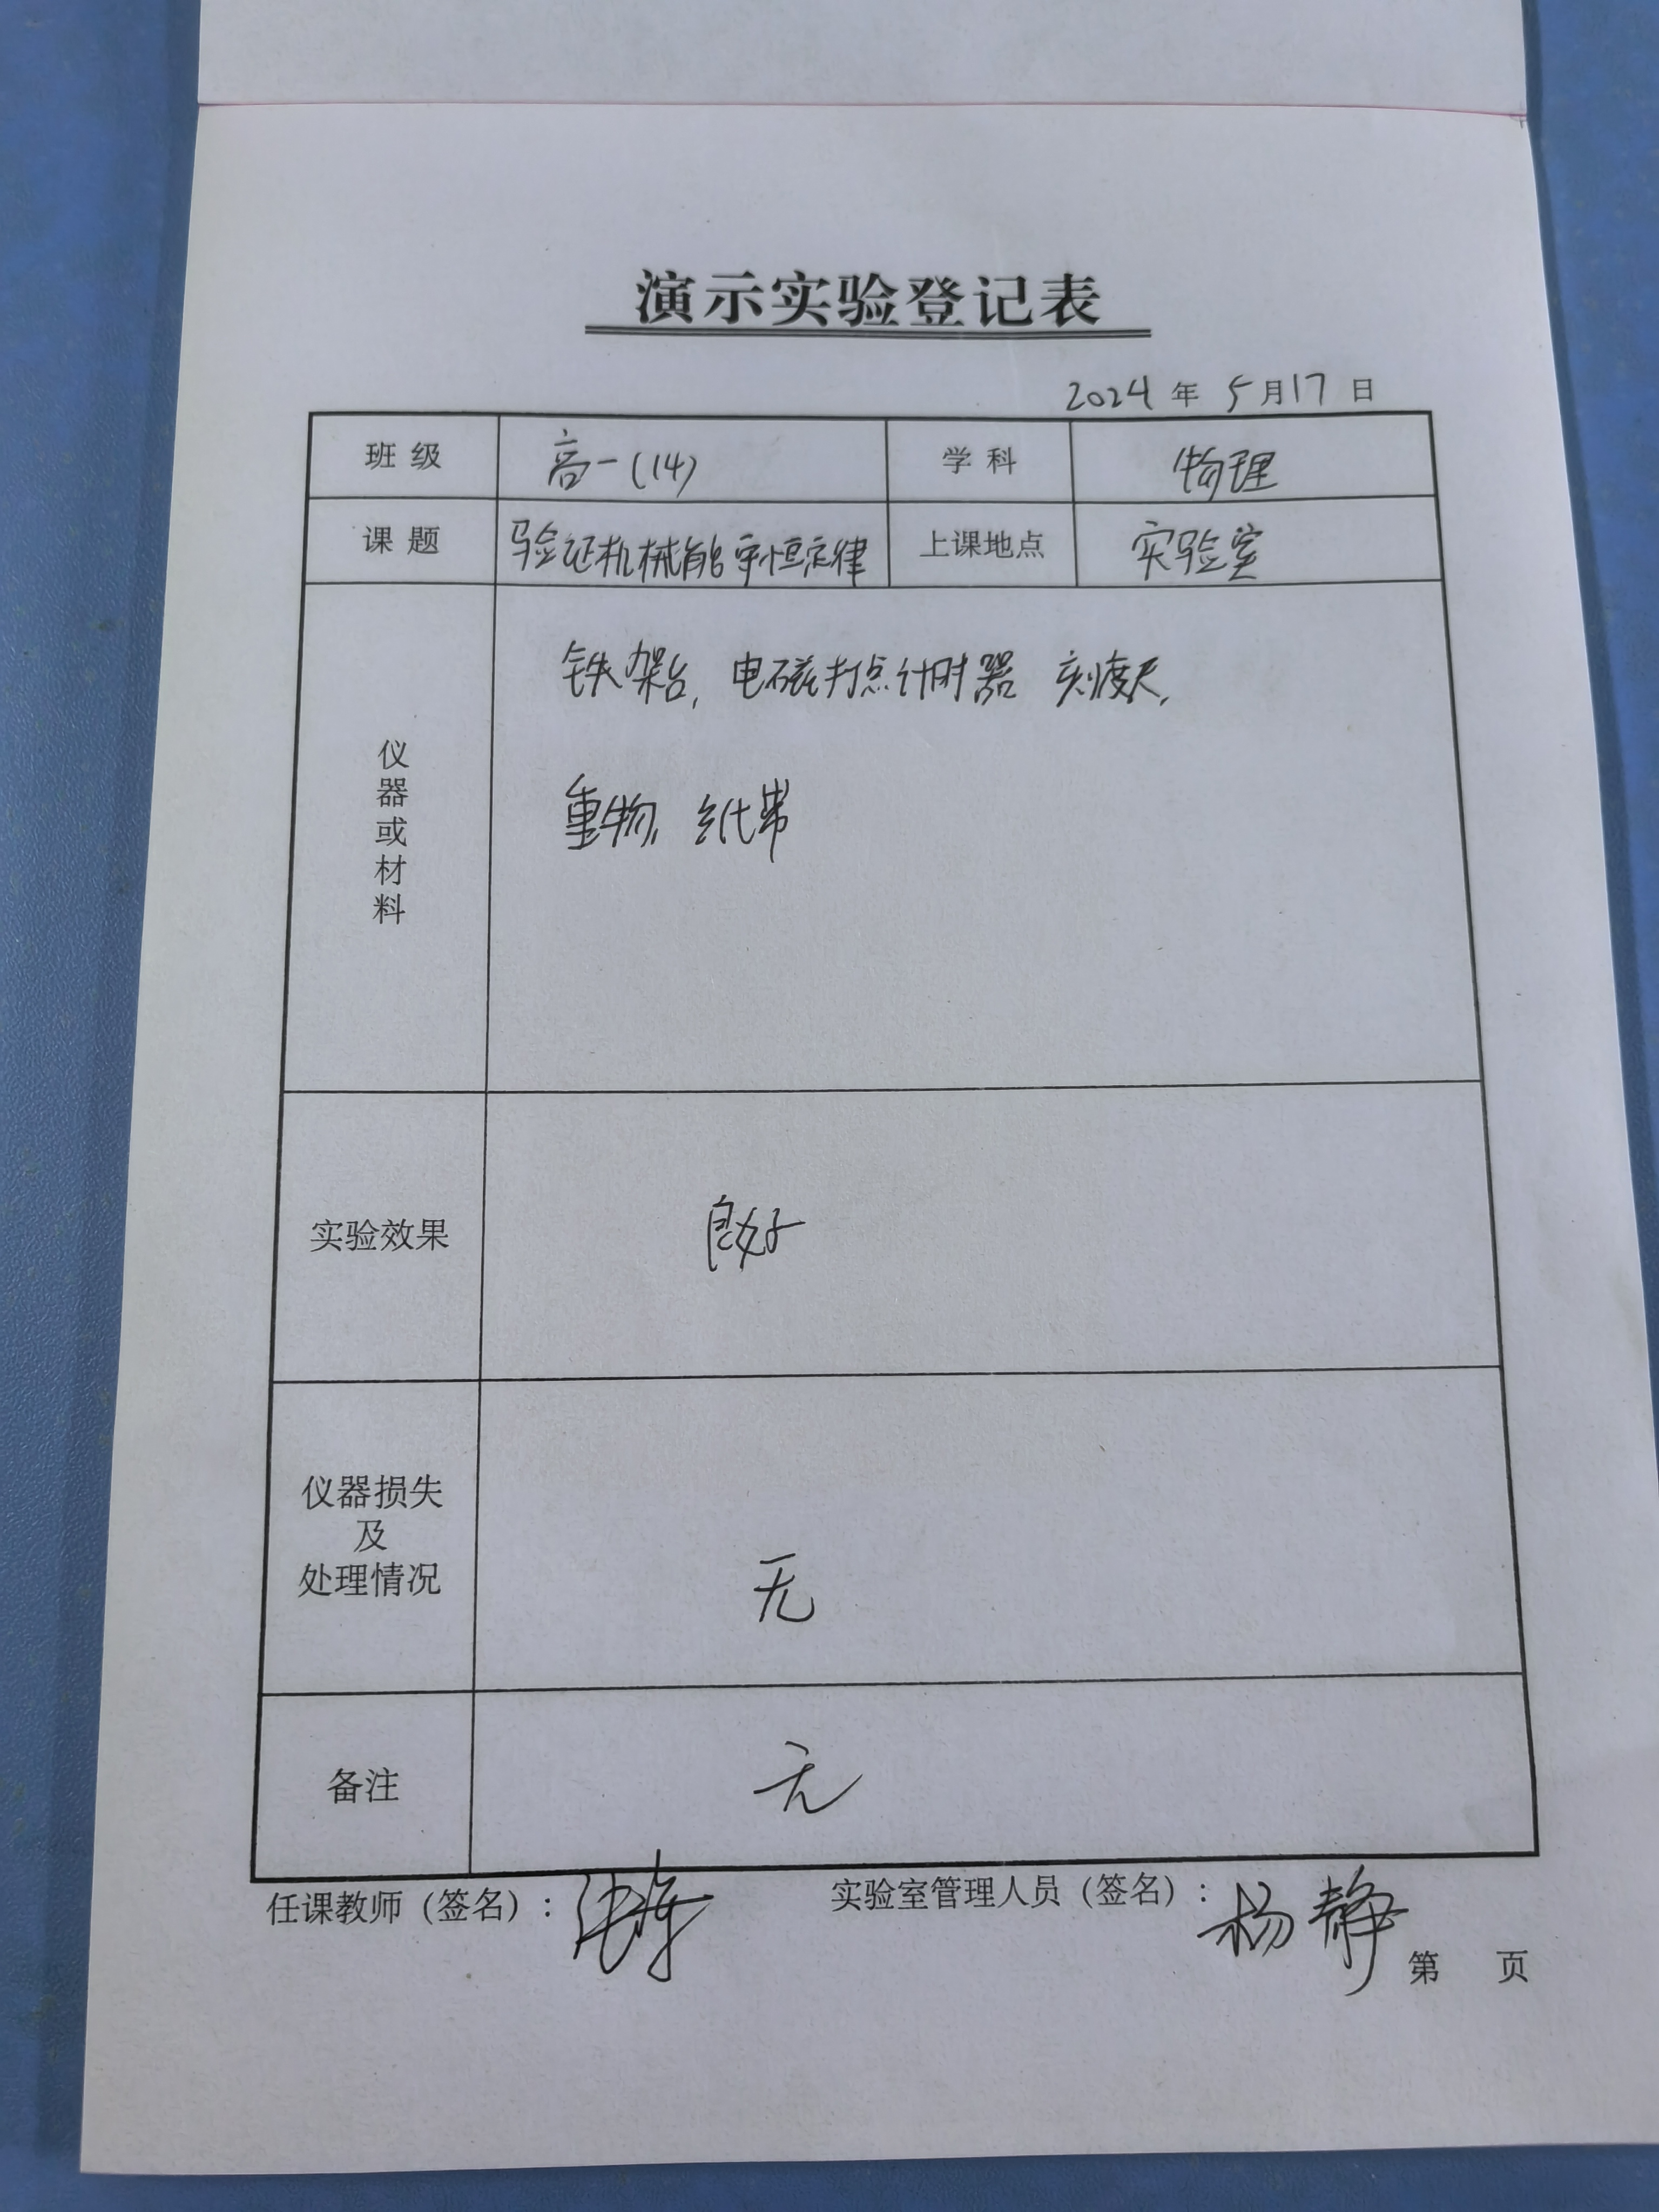 演示实验登记表
2024 年 5 月 17 日
班 级 高一(14) 学 科 物理
课 题 验证机械能守恒定律 上课地点 实验室
仪器或材料
铁架台, 电磁打点计时器 刻度尺,
重物, 纸带
实验效果 良好
仪器损失
及
处理情况
无
备注 无
任课教师(签名): 实验室管理人员(签名): 杨静
第 页